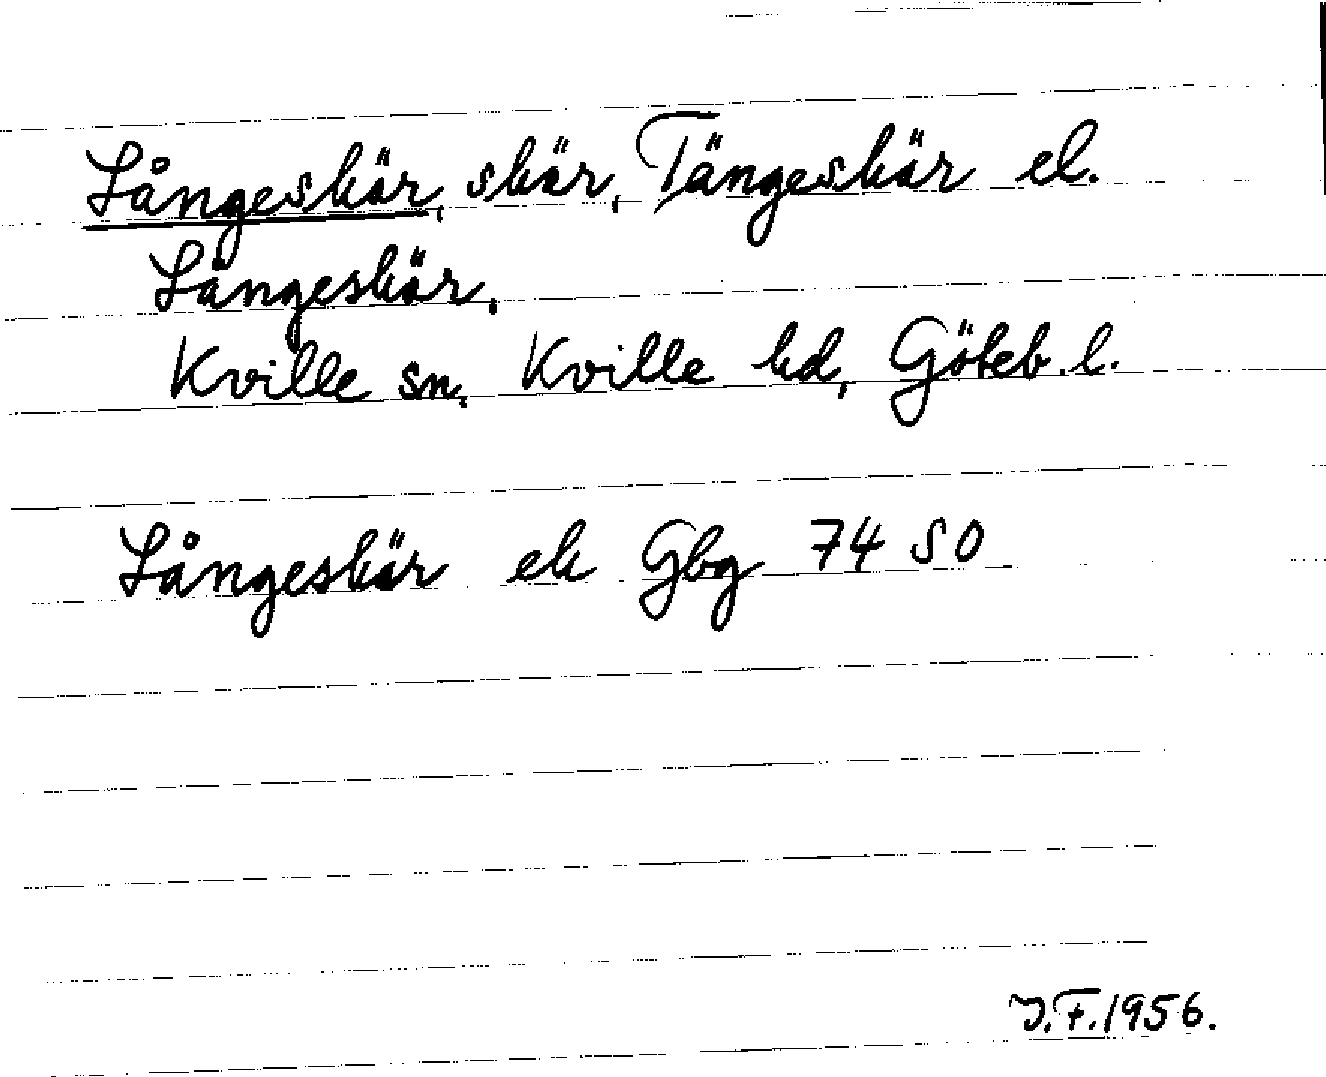 Långeskär, skär, Tängeskär el.
Långeskär.
Kville sn, Kville hd, Göteb. l.
Långeskär ek Gbg 74 SO
J.F. 1956.